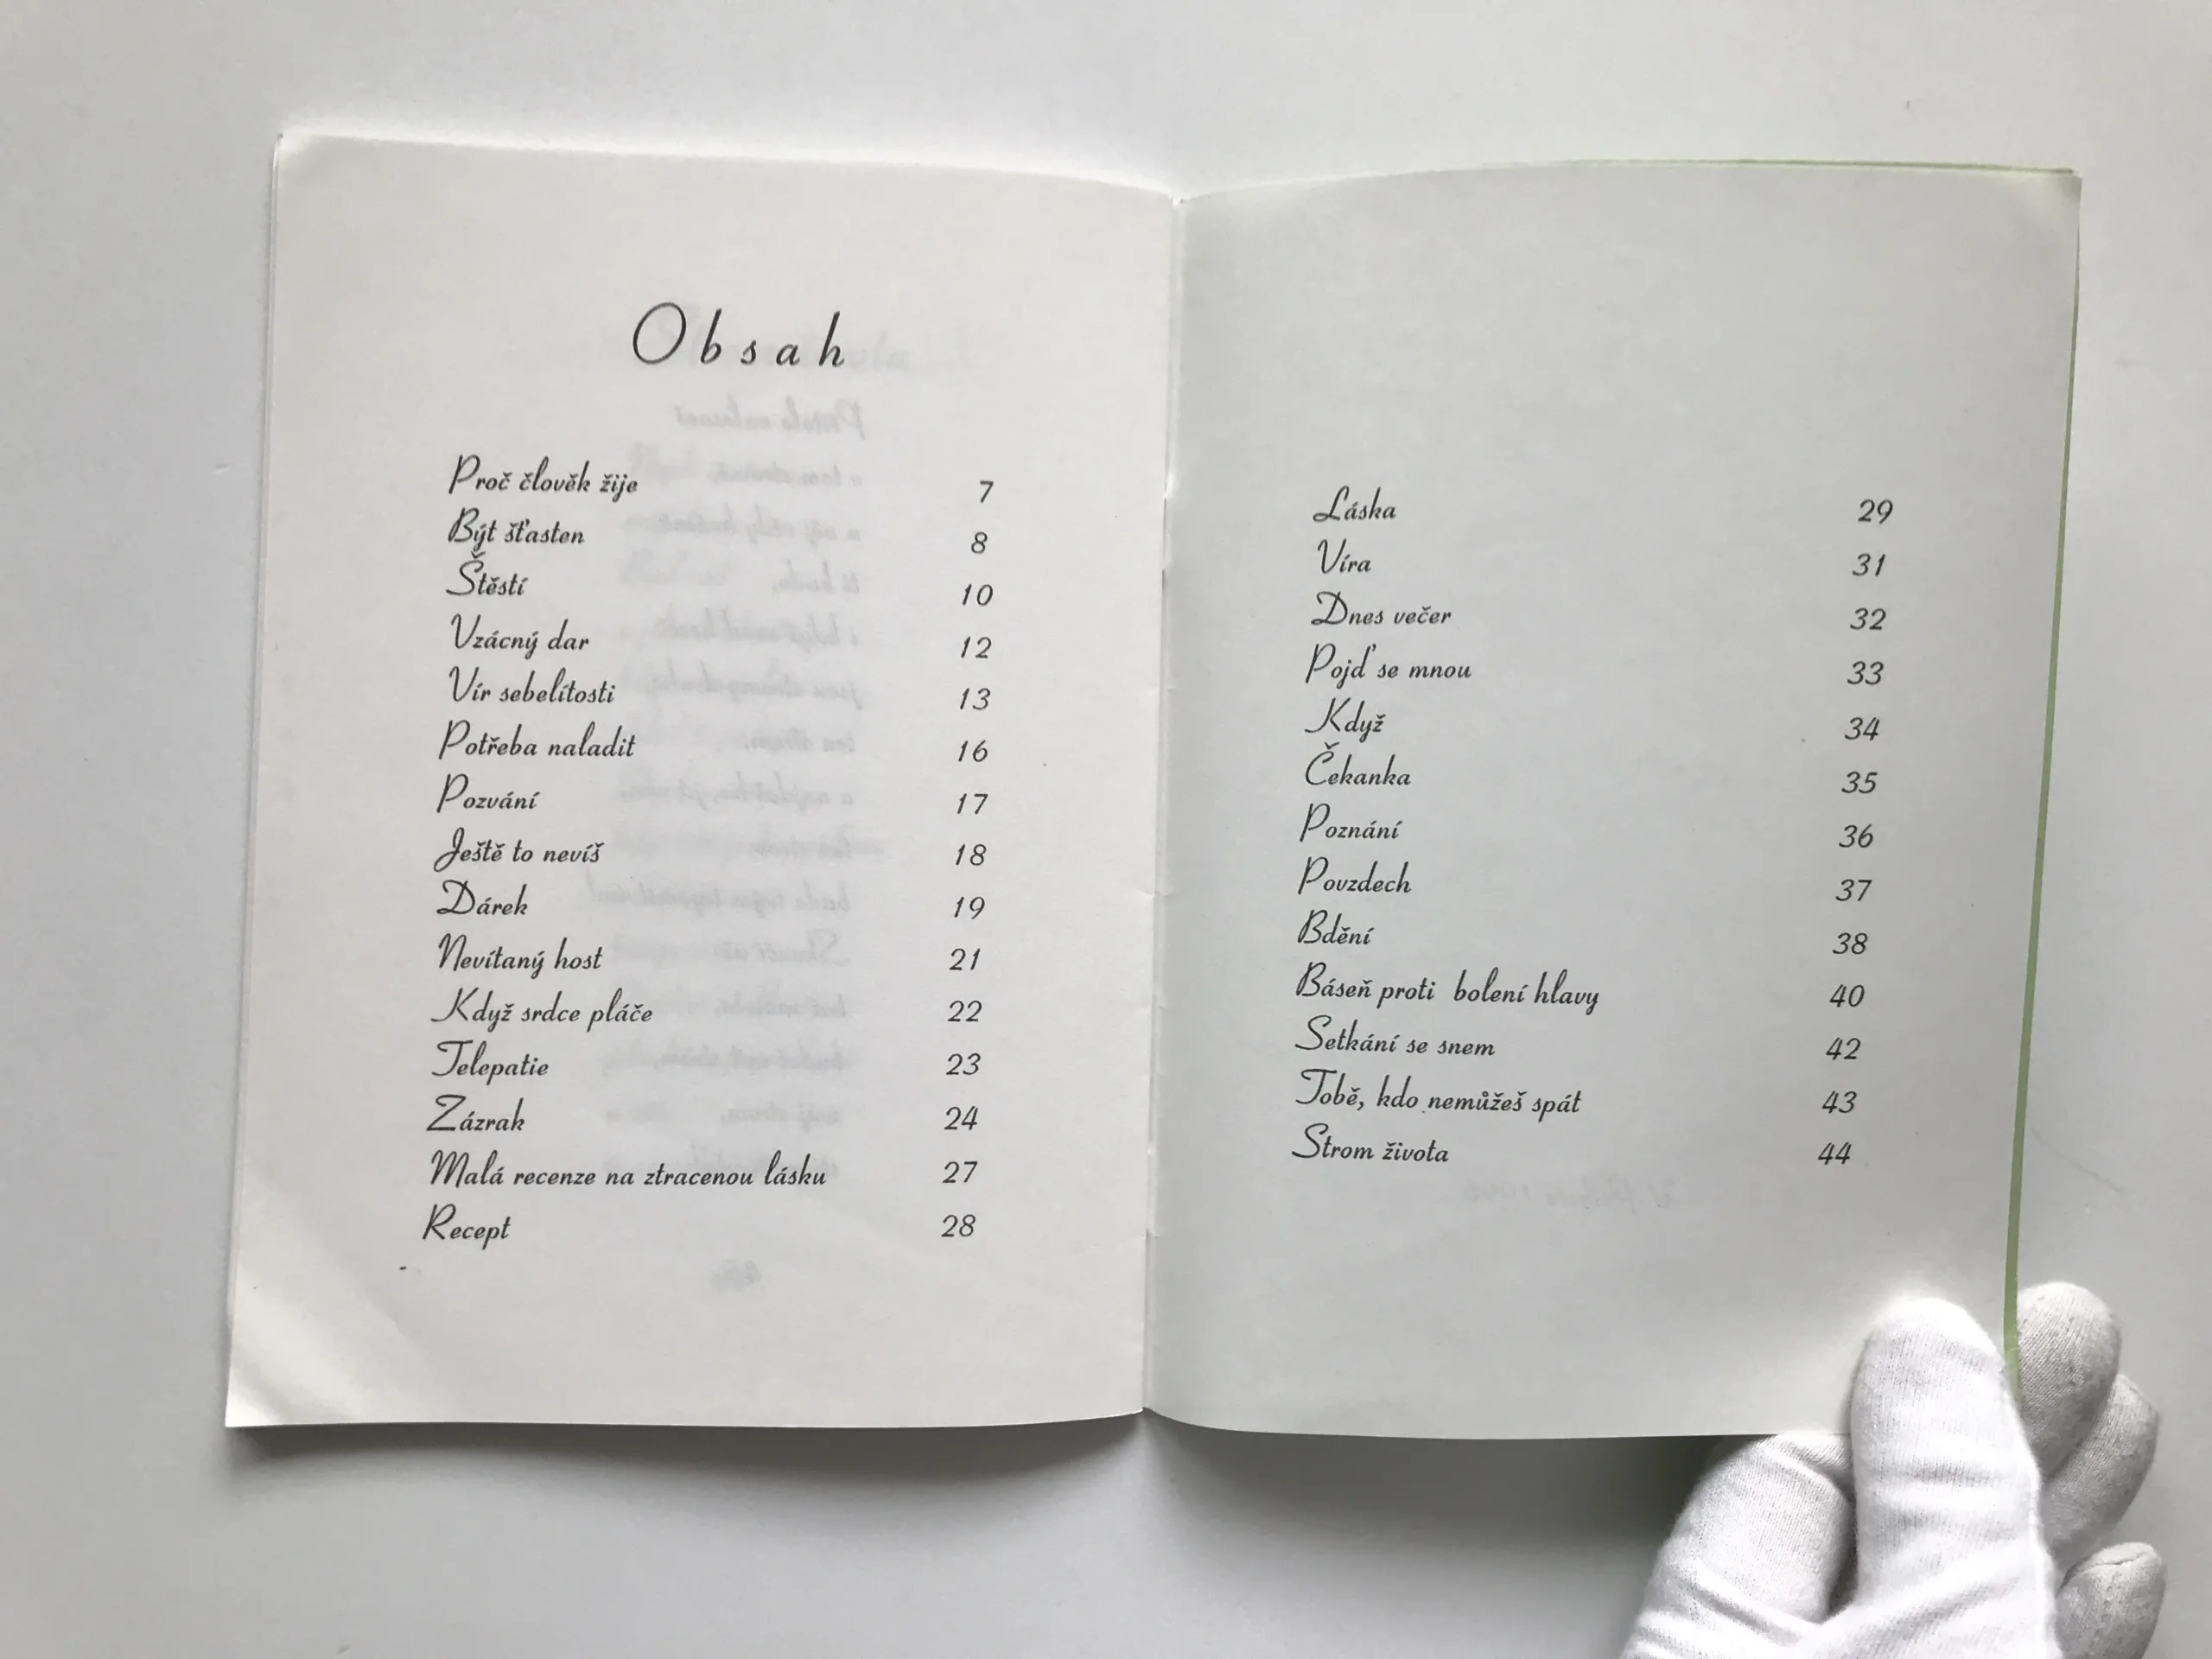 Obsah
Proč člověk žije 7
Být šťasten 8
Štěstí 10
Vzácný dar 12
Vír sebelítosti 13
Potřeba naladit 16
Pozvání 17
Ještě to nevíš 18
Dárek 19
Nevítaný host 21
Když srdce pláče 22
Telepatie 23
Zázrak 24
Malá recenze na ztracenou lásku 27
Recept 28
Láska 29
Víra 31
Dnes večer 32
Pojď se mnou 33
Když 34
Čekanka 35
Poznání 36
Povzdech 37
Bdění 38
Báseň proti bolení hlavy 40
Setkání se snem 42
Tobě, kdo nemůžeš spát 43
Strom života 44